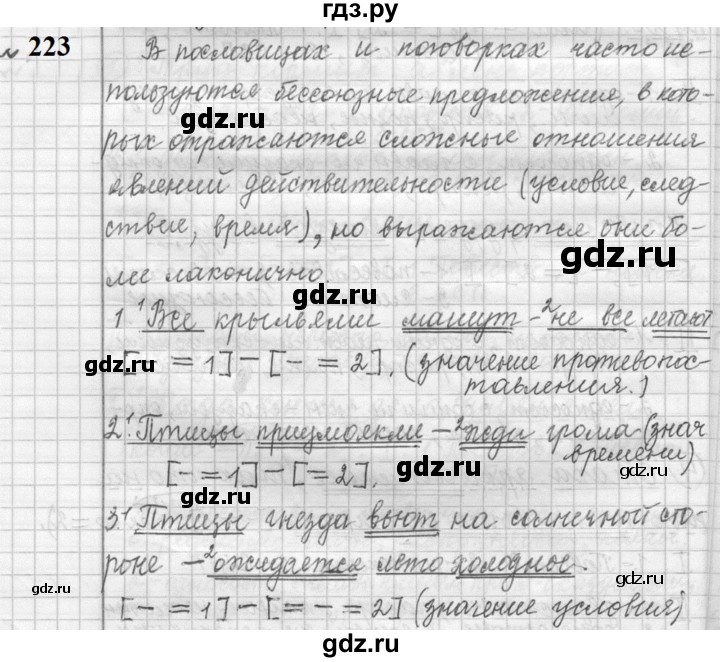 гдз.ру
№ 223 В пословицах и поговорках часто ис-
пользуются бессоюзные предложения, в кото-
gdz.ru gdz.ru
рых отражаются сложные отношения
явлений действительности (условие, след-
ствие, время), но выражаются они бо-
gdz.ru
лее лаконично.
gdz.ru
1. ¹Все крыльями машут - ²не все летают
gdz.ru gdz.ru
[- = 1] - [- = 2]. (значение противопос-
тавления.)
2. ¹Птицы приумолкли - ²жди грома (знач
времени)
gdz.ru gdz.ru
[- = 1] - [= 2].
gdz.ru
3. ¹Птицы гнезда вьют на солнечной сто-
gdz.ru
роне - ²ожидается лето холодные.
gdz.ru gdz.ru
[- = 1] - [= - = 2] (значение условия)
gdz.ru